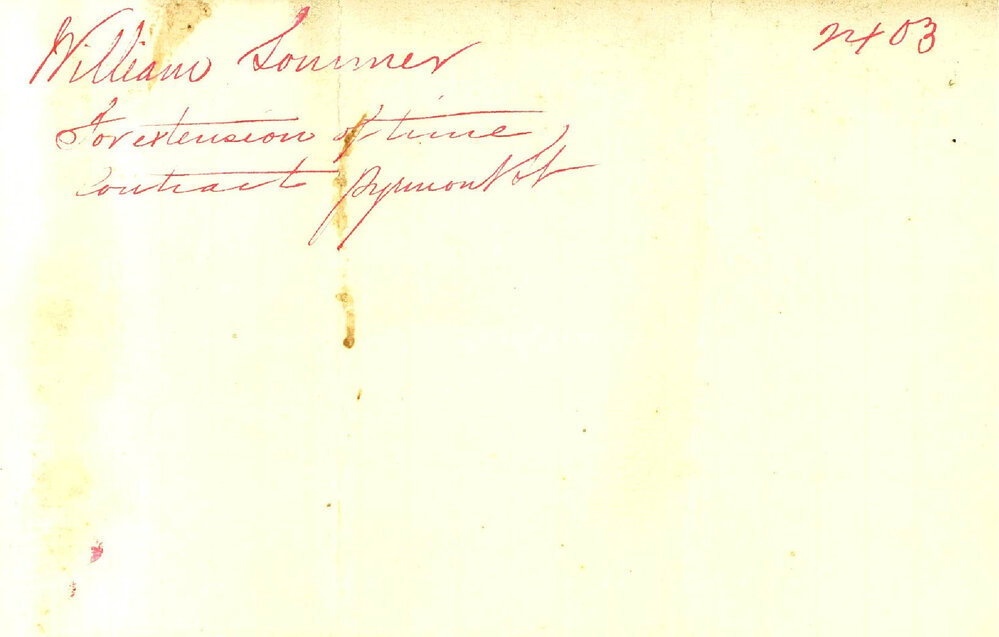 William Sommer 2403
For extension of time
Contract Pyrmont St